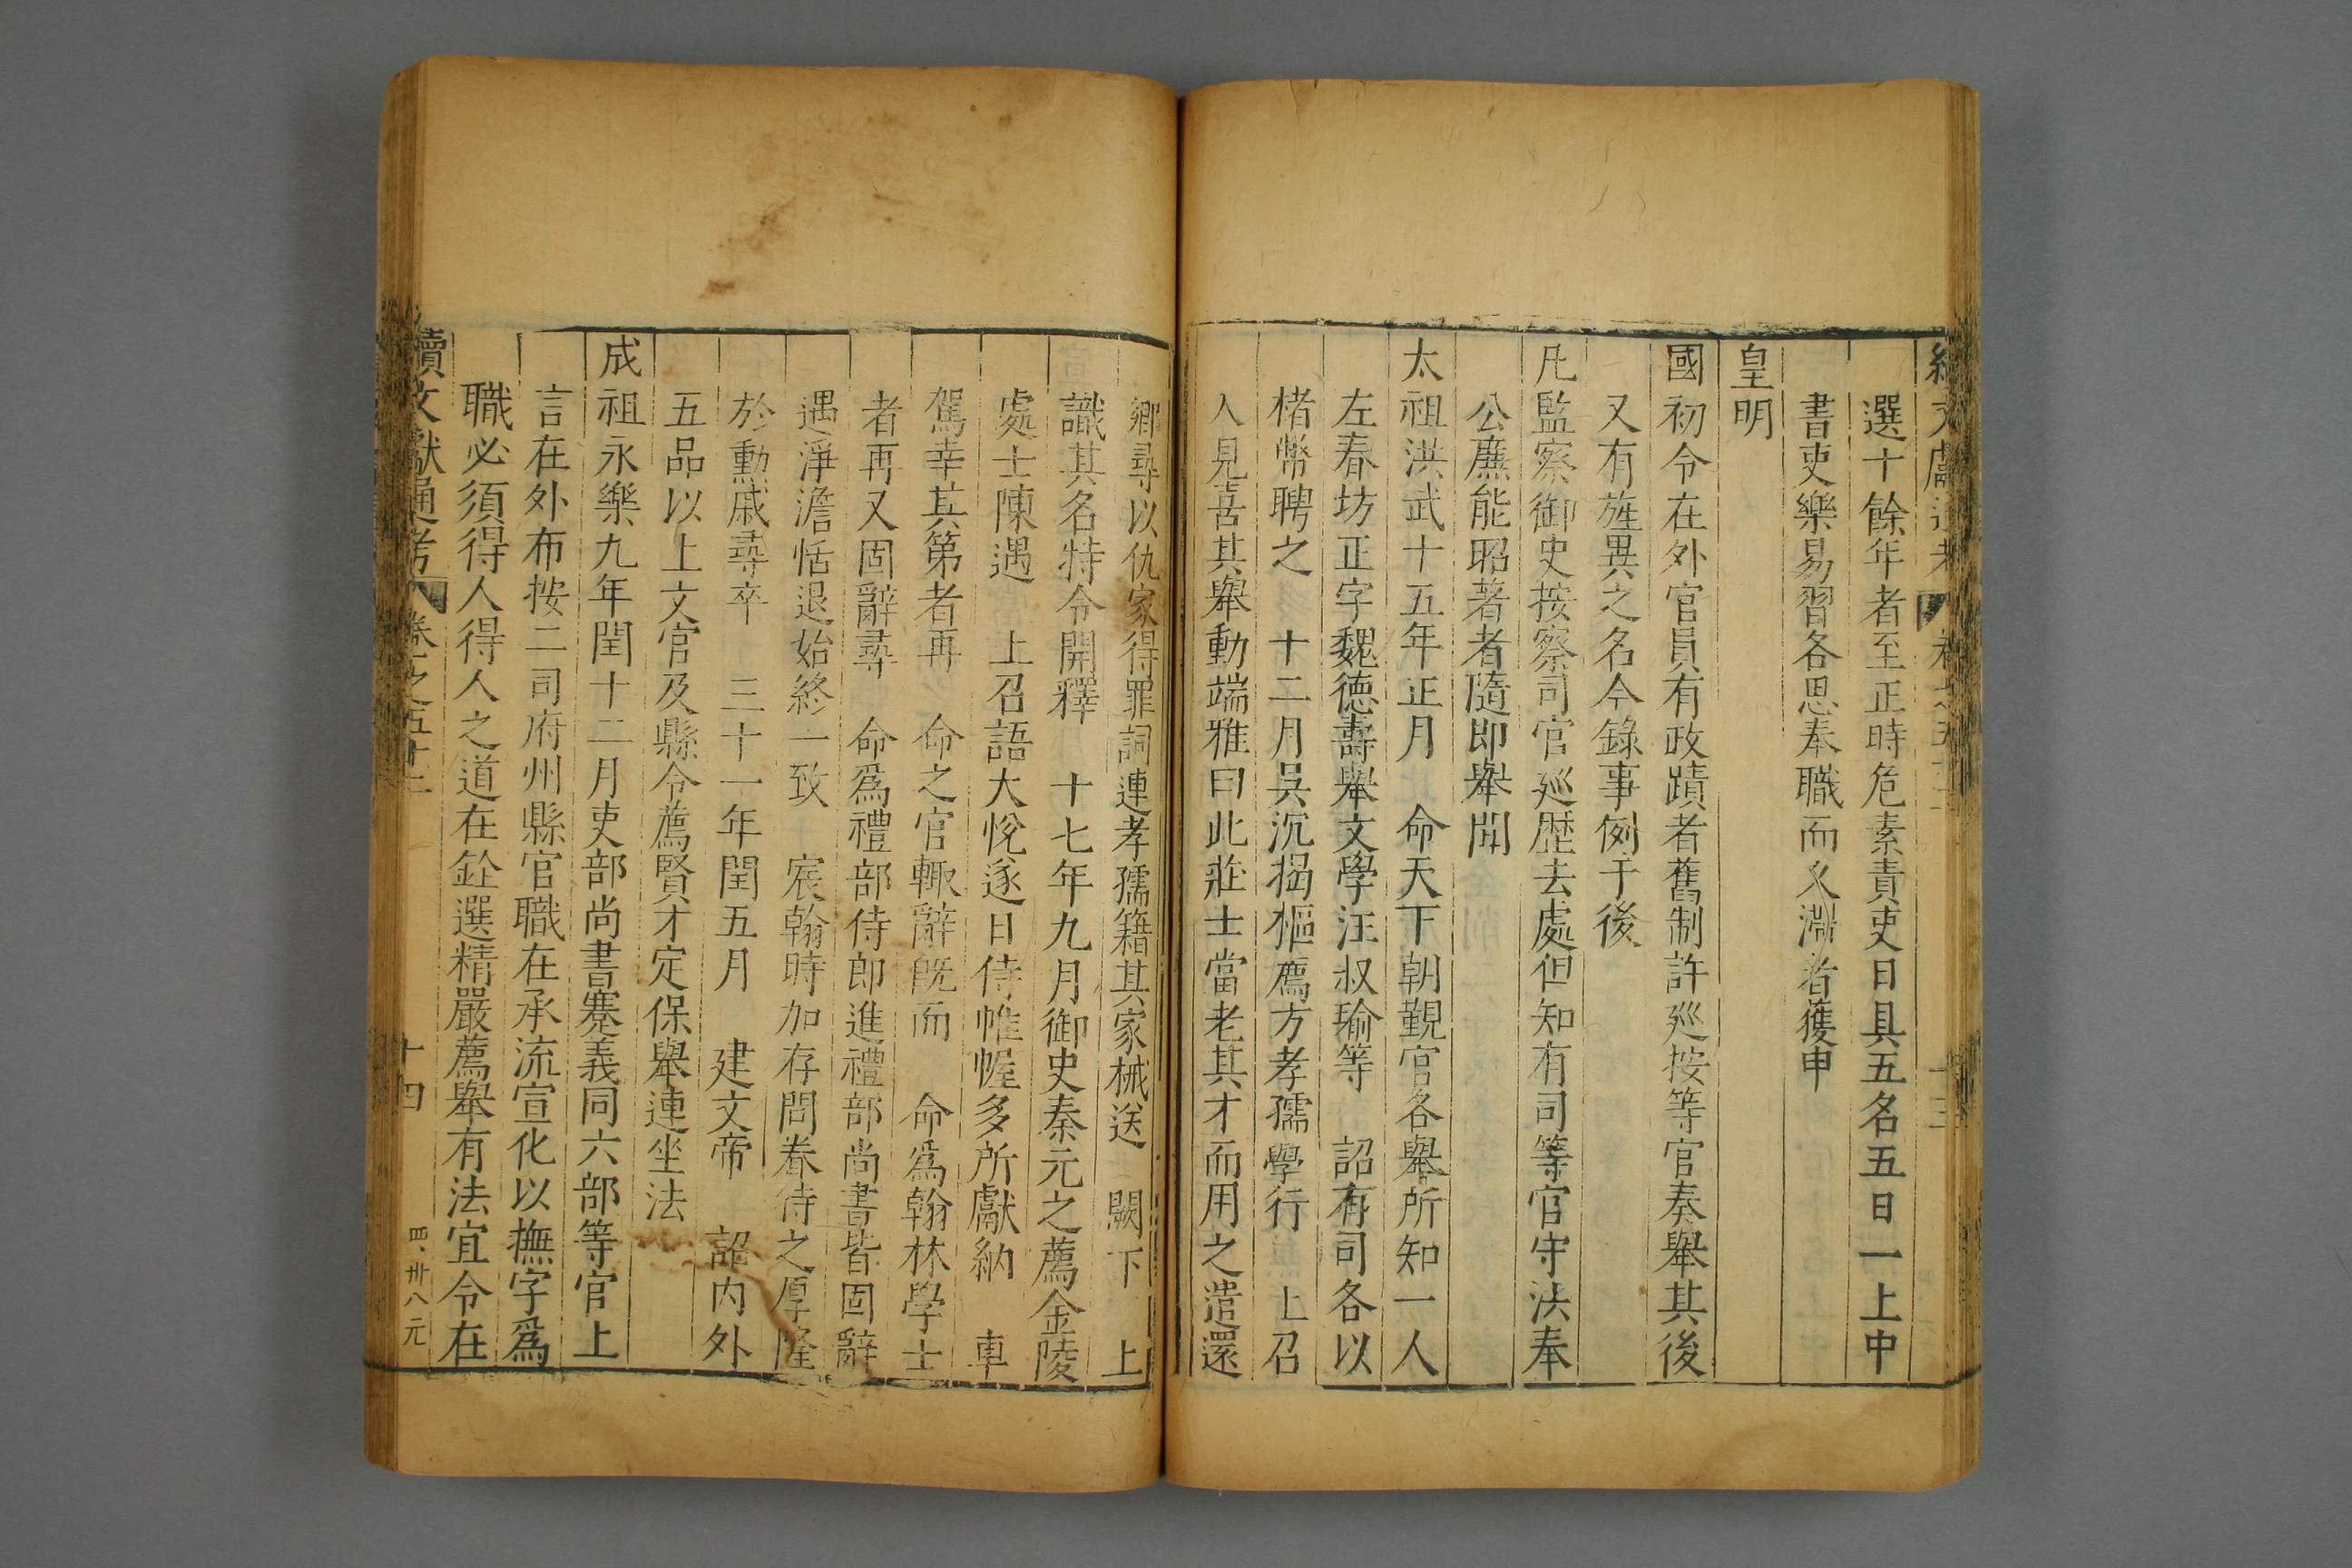 選十餘年者至正時危素責吏日具五名五日一上中
書吏樂易習各思奉職而久淵者獲申
皇明
國初令在外官員有政蹟者舊制許廵按等官奏舉其後
又有旌異之名今錄事例于後
凡監察御史按察司官廵歴去處但知有司等官守法奉
公廉能昭著者隨即舉聞
太祖洪武十五年正月 命天下朝覲官各舉所知一人
左春坊正字魏德壽舉文學汪叔瑜等 詔有司各以
楮幣聘之 十二月吳沉揭樞薦方孝孺學行 上召
入見喜其舉動端雅曰此莊士當老其才而用之遣還
鄉尋以仇家得罪詞連孝孺籍其家械送 闕下 上
識其名特令開釋 十七年九月御史秦元之薦金陵
處士陳遇 上召語大悅遂日侍帷幄多所獻納 車
駕幸其第者再 命之官輙辭旣而 命爲翰林學士
者再又固辭尋 命爲禮部侍郎進禮部尚書皆固辭
遇淨澹恬退始終一致 宸翰時加存問眷待之厚隆
於勳戚尋卒 三十一年閏五月 建文帝 詔內外
五品以上文官及縣令薦賢才定保舉連坐法
成祖永樂九年閏十二月吏部尚書蹇義同六部等官上
言在外布按二司府州縣官職在承流宣化以撫字爲
職必須得人得人之道在銓選精嚴薦舉有法宜令在
續文獻通考 卷之五十二 十四
四、卅八元